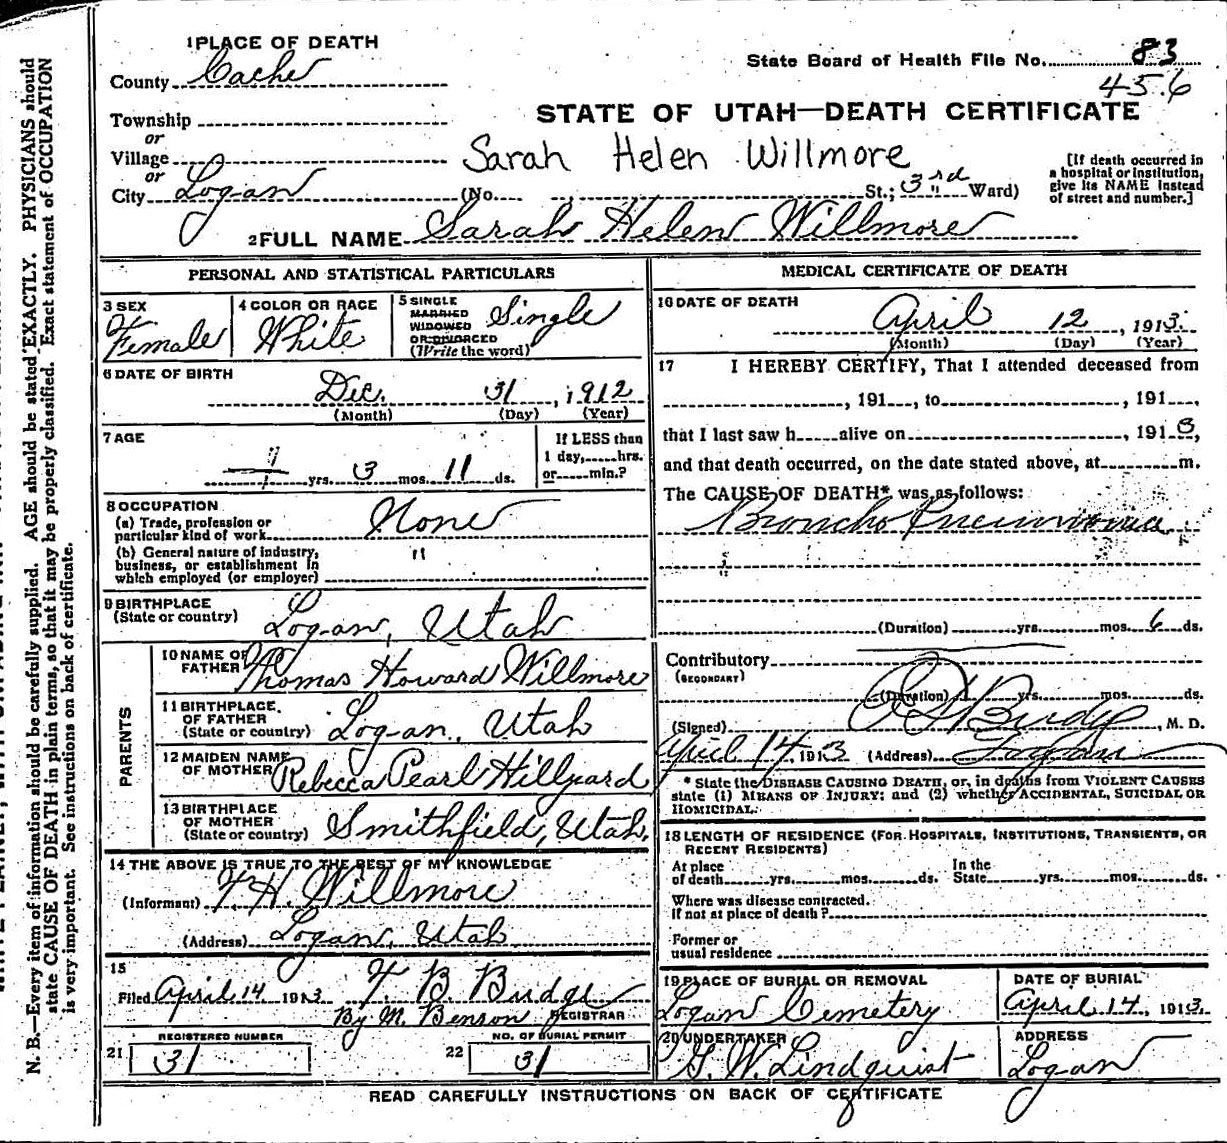 1 PLACE OF DEATH
County Cache
State Board of Health File No. 83
456
STATE OF UTAH—DEATH CERTIFICATE
Township
or
Village
or
City Logan (No. St.; 3rd Ward)
Sarah Helen Willmore
[If death occurred in
a hospital or institution,
give its NAME instead
of street and number.]
2 FULL NAME Sarah Helen Willmore
PERSONAL AND STATISTICAL PARTICULARS
3 SEX
Female
4 COLOR OR RACE
White
5 SINGLE
MARRIED
WIDOWED
OR DIVORCED
(Write the word)
Single
6 DATE OF BIRTH
Dec. 31, 1912
(Month) (Day) (Year)
7 AGE
yrs. 3 mos. 11 ds.
If LESS than
1 day, hrs.
or min.?
8 OCCUPATION
(a) Trade, profession or
particular kind of work None
(b) General nature of industry,
business, or establishment in
which employed (or employer) "
9 BIRTHPLACE
(State or country) Logan, Utah
PARENTS
10 NAME OF
FATHER Thomas Howard Willmore
11 BIRTHPLACE
OF FATHER
(State or country) Logan, Utah
12 MAIDEN NAME
OF MOTHER Rebecca Pearl Hillyard
13 BIRTHPLACE
OF MOTHER
(State or country) Smithfield, Utah.
14 THE ABOVE IS TRUE TO THE BEST OF MY KNOWLEDGE
(Informant) T. H. Willmore
(Address) Logan, Utah
15
Filed April 14 1913 T. B. Budge
By M. Benson REGISTRAR
REGISTERED NUMBER
21 31
NO. OF BURIAL PERMIT
22 31
MEDICAL CERTIFICATE OF DEATH
16 DATE OF DEATH
April 12, 1913
(Month) (Day) (Year)
17 I HEREBY CERTIFY, That I attended deceased from
, 191 , to , 191 ,
that I last saw h alive on , 1913,
and that death occurred, on the date stated above, at m.
The CAUSE OF DEATH* was as follows:
Broncho Pneumonia
(Duration) yrs. mos. 6 ds.
Contributory
(SECONDARY)
(Duration) yrs. mos. ds.
(Signed) Budge, M. D.
April 14, 1913 (Address) Logan
* State the DISEASE CAUSING DEATH, or, in deaths from VIOLENT CAUSES
state (1) MEANS OF INJURY; and (2) whether ACCIDENTAL, SUICIDAL OR
HOMICIDAL.
18 LENGTH OF RESIDENCE (FOR HOSPITALS, INSTITUTIONS, TRANSIENTS, OR
RECENT RESIDENTS)
At place
of death yrs. mos. ds.
In the
State yrs. mos. ds.
Where was disease contracted.
if not at place of death?
Former or
usual residence
19 PLACE OF BURIAL OR REMOVAL
Logan Cemetery
DATE OF BURIAL
April 14, 1913
20 UNDERTAKER
G. W. Lindquist
ADDRESS
Logan
READ CAREFULLY INSTRUCTIONS ON BACK OF CERTIFICATE
N. B.—Every item of information should be carefully supplied. AGE should be stated EXACTLY. PHYSICIANS should
state CAUSE OF DEATH in plain terms, so that it may be properly classified. Exact statement of OCCUPATION
is very important. See instructions on back of certificate.